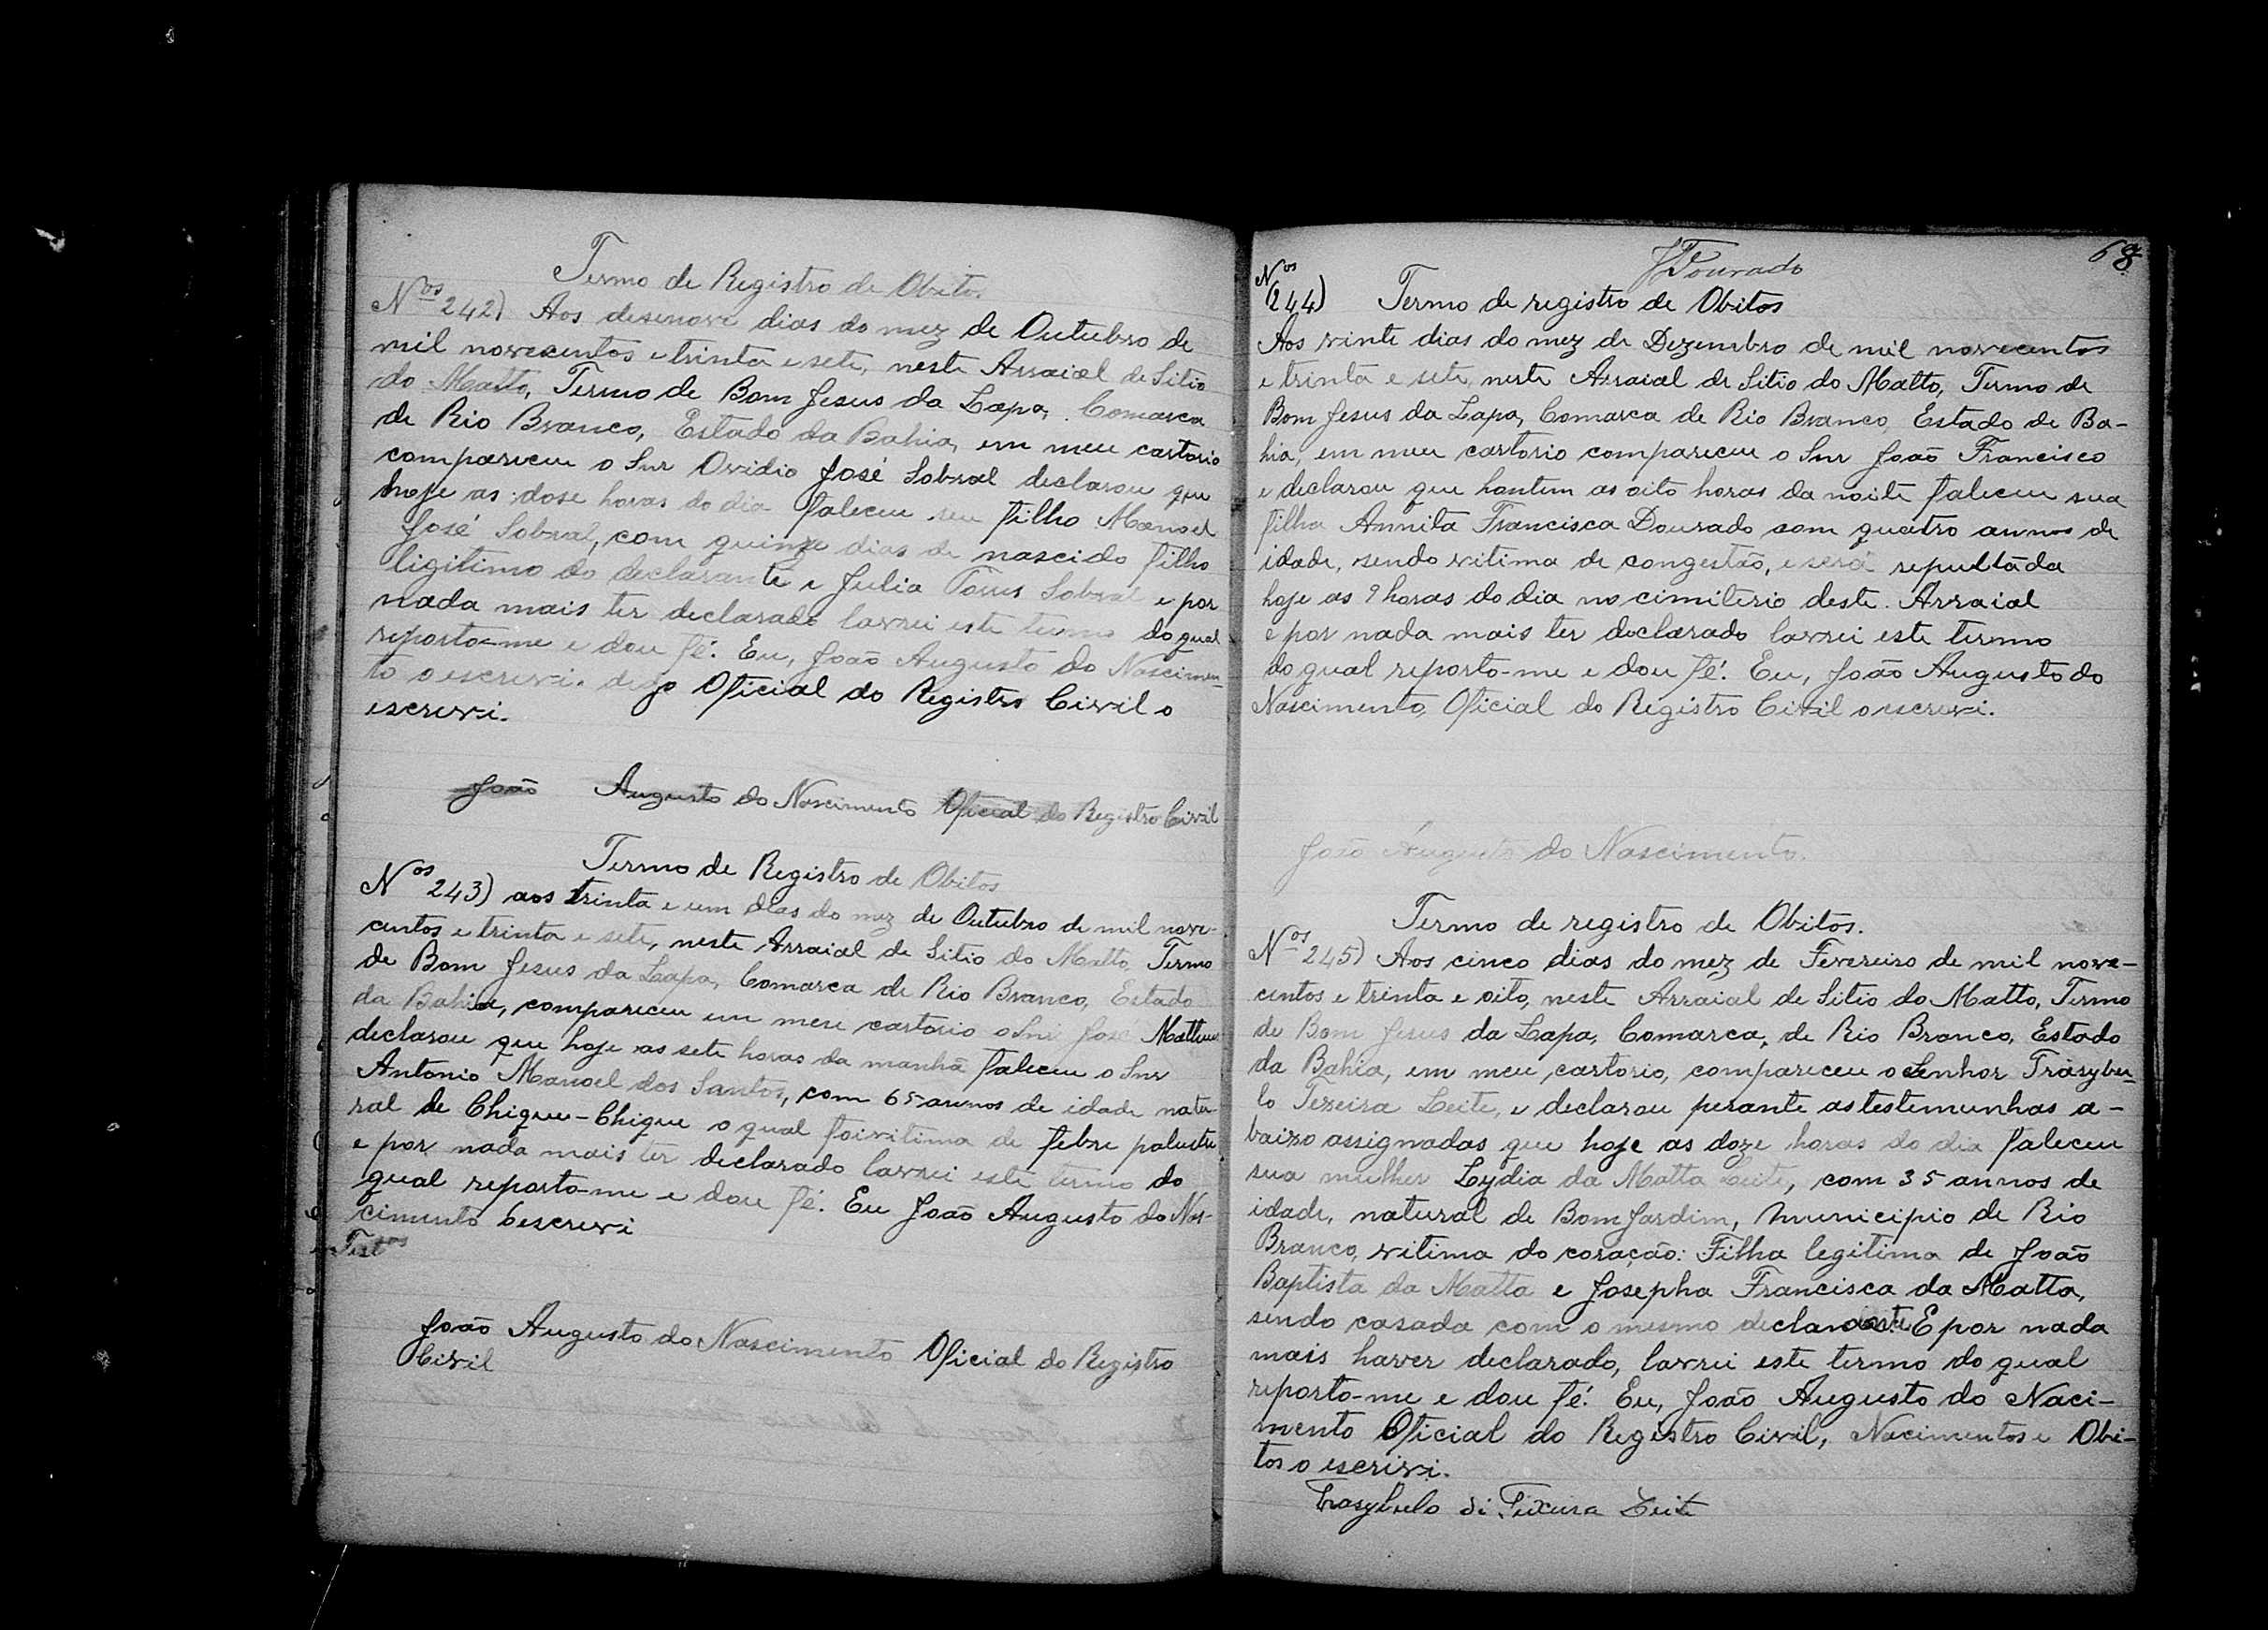 Termo de Registro de Obitos.
Nos 242) Aos desenove dias do mez de Outubro de
mil novecentos e trinta e sete, neste Arraial de Sitio
do Matto, Termo de Bom Jesus da Lapa, Comarca
de Rio Branco, Estado da Bahia, em meu cartorio
compareceu o Snr Ovidio José Sobral declarou que
hoje as dose horas do dia faleceu seu filho Manoel
José Sobral, com quinze dias de nascido filho
ligitimo do declarante e Julia Sobral e por
nada mais ter declarado lavrei este termo do qual
reporto-me e dou fé. Eu, João Augusto do Nascimen-
to o escrevi. digo Oficial do Registro Civil o
escrevi.
João Augusto do Nascimento Oficial do Registro Civil
Termo de Registro de Obitos
Nos 243) aos trinta e um dias do mez de Outubro de mil nove-
centos e trinta e sete, neste Arraial de Sitio do Matto, Termo
de Bom Jesus da Lapa, Comarca de Rio Branco, Estado
da Bahia, compareceu em meu cartorio o Snr José Matheus
declarou que hoje as sete horas da manhã faleceu o Snr
Antonio Manoel dos Santos, com 65 annos de idade natu-
ral de Chique-Chique o qual foi vitima de febre palustre
e por nada mais ter declarado lavrei este termo do
qual reporto-me e dou fé. Eu João Augusto do Nas-
cimento o escrevi
Testos
João Augusto do Nascimento Oficial do Registro
Civil
J Dourado
68
Nos
(244) Termo de registro de Obitos
Aos vinte dias do mez de Dezembro de mil novecentos
e trinta e sete, neste Arraial de Sitio do Matto, Termo de
Bom Jesus da Lapa, Comarca de Rio Branco, Estado de Ba-
hia, em meu cartorio compareceu o Snr João Francisco
e declarou que hontem as oito horas da noite faleceu sua
filha Annita Francisca Dourado com quatro annos de
idade, sendo vitima de congestão, e será sepultada
hoje as 9 horas do dia no cimiterio deste. Arraial
e por nada mais ter declarado lavrei este termo
do qual reporto-me e dou fé. Eu, João Augusto do
Nascimento, Oficial do Registro Civil o escrevi.
João Augusto do Nascimento.
Termo de registro de Obitos.
Nos 245) Aos cinco dias do mez de Fevereiro de mil nove-
centos e trinta e oito, neste Arraial de Sitio do Matto, Termo
de Bom Jesus da Lapa, Comarca, de Rio Branco, Estado
da Bahia, em meu cartorio, compareceu o Senhor Trasybu-
lo Texeira Leite, e declarou perante as testemunhas a-
baixo assignadas que hoje as doze horas do dia faleceu
sua mulher Lydia da Matta Leite, com 35 annos de
idade, natural de Bom Jardim, Municipio de Rio
Branco, vitima do coração: Filha legitima de João
Baptista da Matta e Josepha Francisca da Matta,
sendo casada com o mesmo declarante. E por nada
mais haver declarado, lavrei este termo do qual
reporto-me e dou fé. Eu, João Augusto do Naci-
mento Oficial do Registro Civil, Nacimentos e Obi-
tos o escrivi.
Trasybulo di Teixeira Leite